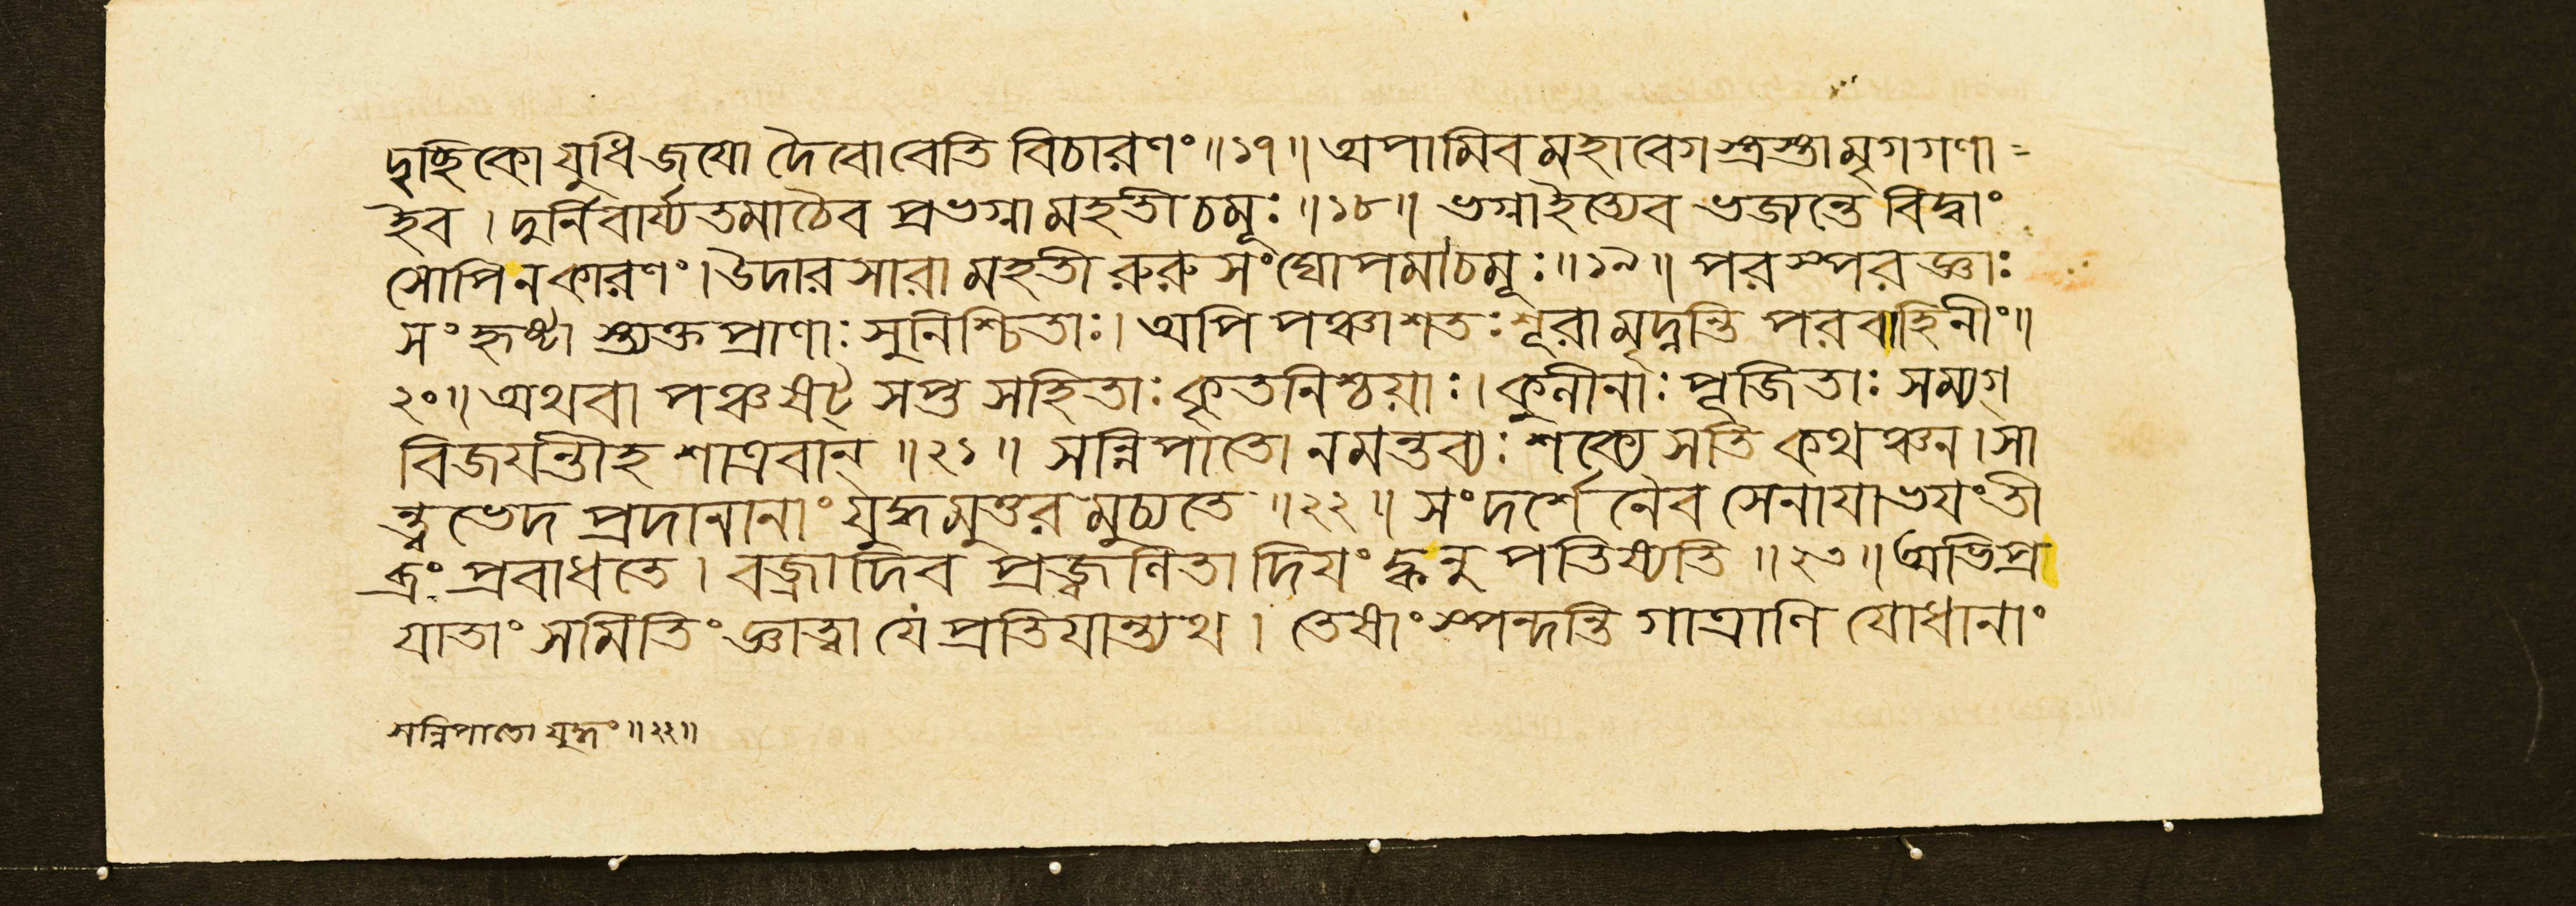 দৃচ্ছিকো যুধি জযো দৈবো বেতি বিচারণং ॥১৭॥ অপামিব মহাবেগ স্ত্রস্তা মৃগগণা =
ইব । দুর্নিবার্য্য তমা চৈব প্রভগ্না মহতী চমূঃ ॥১৮॥ ভগ্না ইত্যেব ভজ্যন্তে বিদ্বাং
সোপি ন কারণং । উদার সারা মহতী রুরু সংঘোপমা চমূঃ ॥১৯॥ পরস্পর জ্ঞাঃ
সংহৃষ্টা স্ত্যক্ত প্রাণাঃ সুনিশ্চিতাঃ । অপি পঞ্চাশতঃ শূরা মৃদ্নন্তি পরবাহিনীং ॥
২০॥ অথবা পঞ্চ ষট্ সপ্ত সহিতাঃ কৃতনিশ্চয়াঃ । কুলীনাঃ পূজিতাঃ সম্যগ্
বিজযন্তীহ শাত্রবান্ ॥২১॥ সন্নিপাতো ন মন্তব্যঃ শক্যে সতি কথঞ্চন । সা
ন্ত্ব ভেদ প্রদানানাং যুদ্ধমুত্তর মুচ্যতে ॥২২॥ সংদর্শেনৈব সেনাযা ভযং ভী
ত্রূং প্রবাধতে । বজ্রাদিব প্রজ্বলিতা দিযং ক্বনু পতিষ্যতি ॥২৩॥ অভিপ্র
যাতাং সমিতিং জ্ঞাত্বা যে প্রতিযান্ত্যথ । তেষাং স্পন্দন্তি গাত্রাণি যোধানাং
সন্নিপাতো যুদ্ধং ॥২২॥